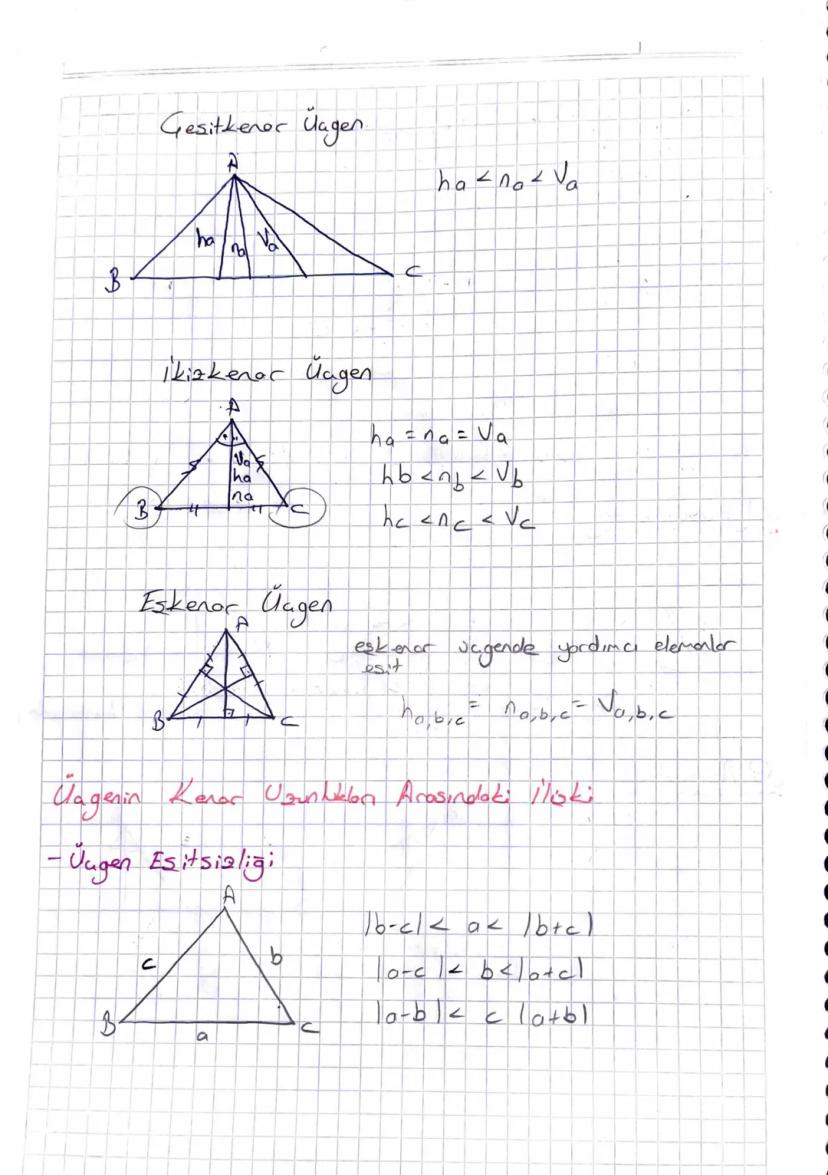 Çeşitkenar Üçgen
A
ha < na < Va
ha na Va
B C
İkizkenar Üçgen
A
ha = na = Va
Va
ha
na
hb < nb < Vb
B C
hc < nc < Vc
Eşkenar Üçgen
A
eşkenar üçgende yardımcı elemanlar
eşit
B C
ha,b,c = na,b,c = Va,b,c
Üçgenin Kenar Uzunlukları Arasındaki İlişki
- Üçgen Eşitsizliği
A
|b-c| < a < |b+c|
c b
|a-c| < b < |a+c|
|a-b| < c |a+b|
B C
a